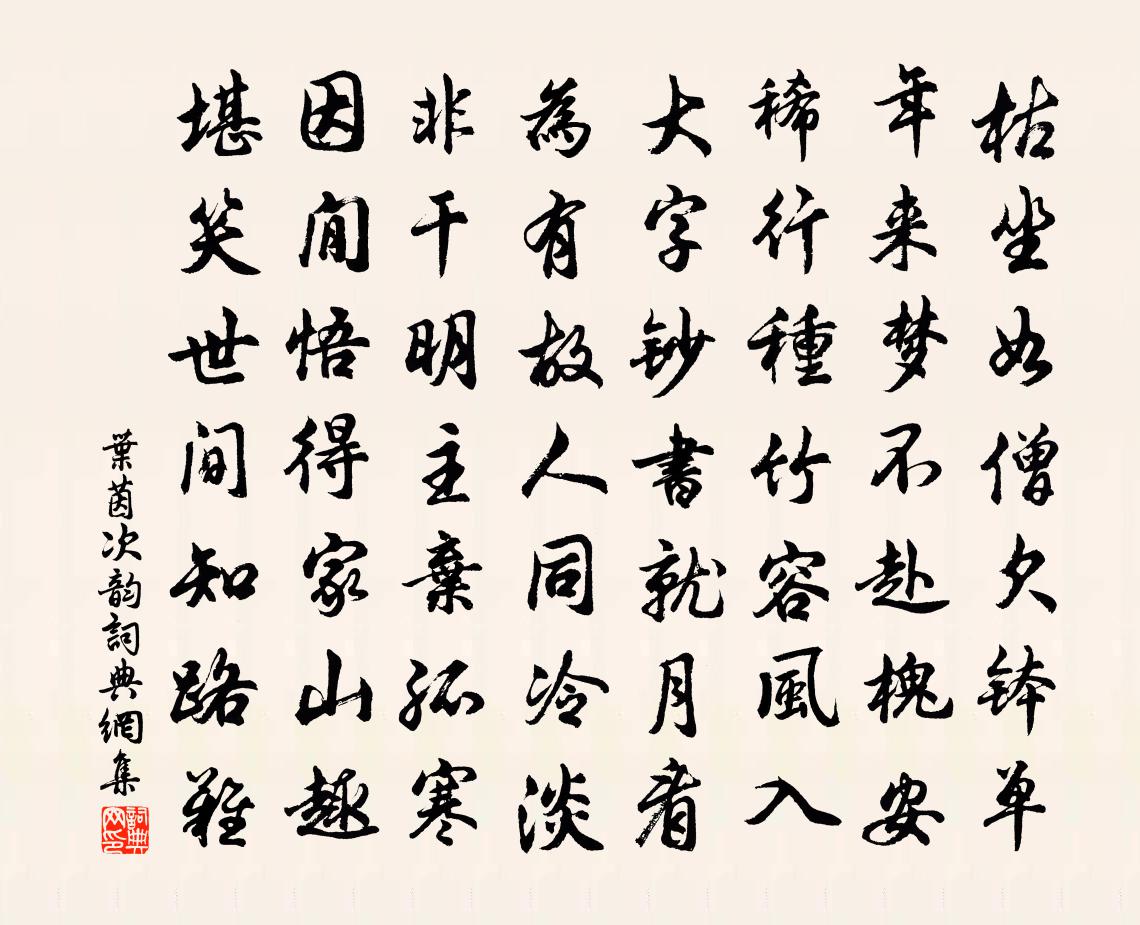 枯坐如僧欠钵单
年来梦不赴槐安
稀行種竹容風入
大字鈔書就月看
為有故人同冷淡
非干明主棄孤寒
因閒悟得家山趣
堪笑世间知路難
葉茵次韵詞典網集
詞典网印